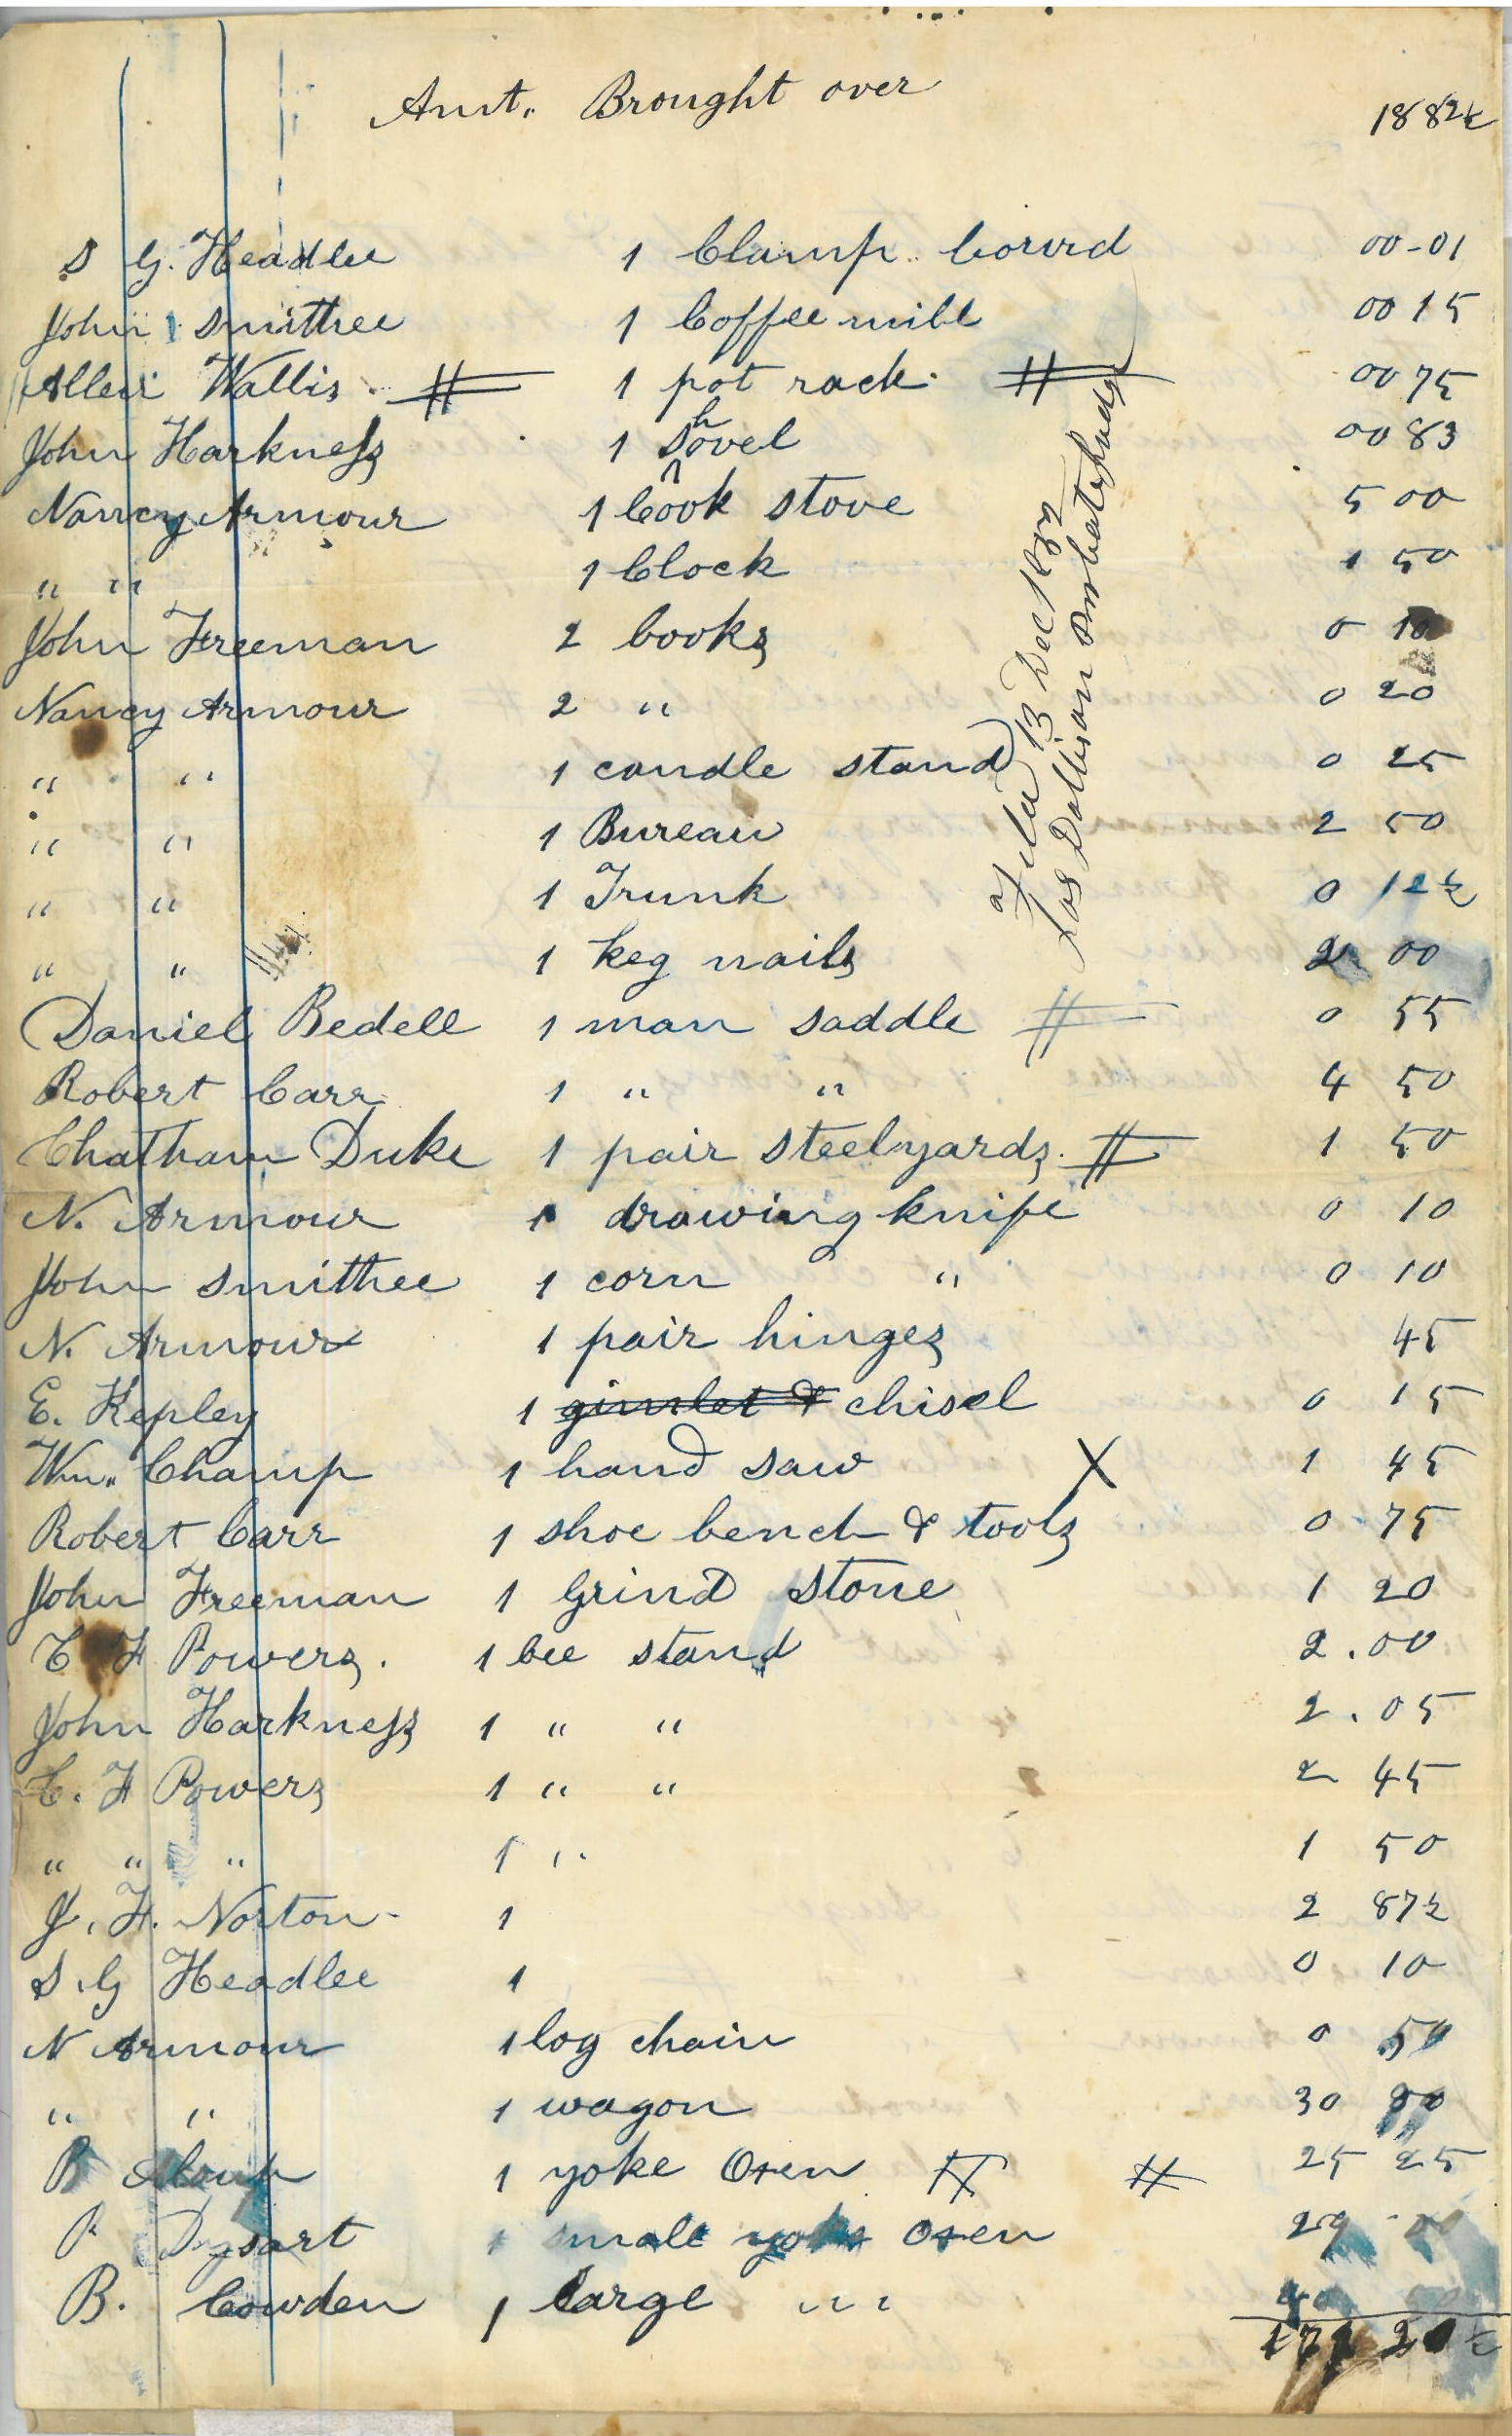 Amt. Brought over 18 82½
S G. Headlee 1 Clamp bourd 00-01
John Smithee 1 Coffee mill 00 15
Allen Wallis 1 pot rack 00 75
John Harkness 1 shovel 00 83
Nancy Armour 1 Cook stove 5 00
" " 1 Clock 1 50
John Freeman 2 books 0 10
Nancy Armour 2 " 0 20
" " 1 candle stand 0 25
" " 1 Bureau 2 50
" " 1 Trunk 0 12½
" " 1 keg nails 2 00
Daniel Bedell 1 man saddle 0 55
Robert Carr 1 " " 4 50
Chatham Duke 1 pair steelyards 1 50
N. Armour 1 drawing knife 0 10
John Smithee 1 corn " 0 10
N. Armour 1 pair hinges 45
E. Kepley 1 gimlet & chisel 0 15
Wm. Champ 1 hand saw X 1 45
Robert Carr 1 shoe bench & tools 0 75
John Freeman 1 Grind stone 1 20
C F Powers. 1 bee stand 2.00
John Harkness 1 " " 2.05
C. F Powers 1 " " 2 45
" " " 1 " 1 50
J. F. Norton 1 2 87½
S. G Headlee 1 0 10
N Armour 1 log chain 0 50
" " 1 wagon 30 00
B Alsup 1 yoke Oxen 25 25
P Dysart 1 small yoke oxen 29 00
B. Cowden 1 large " " 40 00
Filed 13 Dec 1852
Jos Dallison Probate Judge